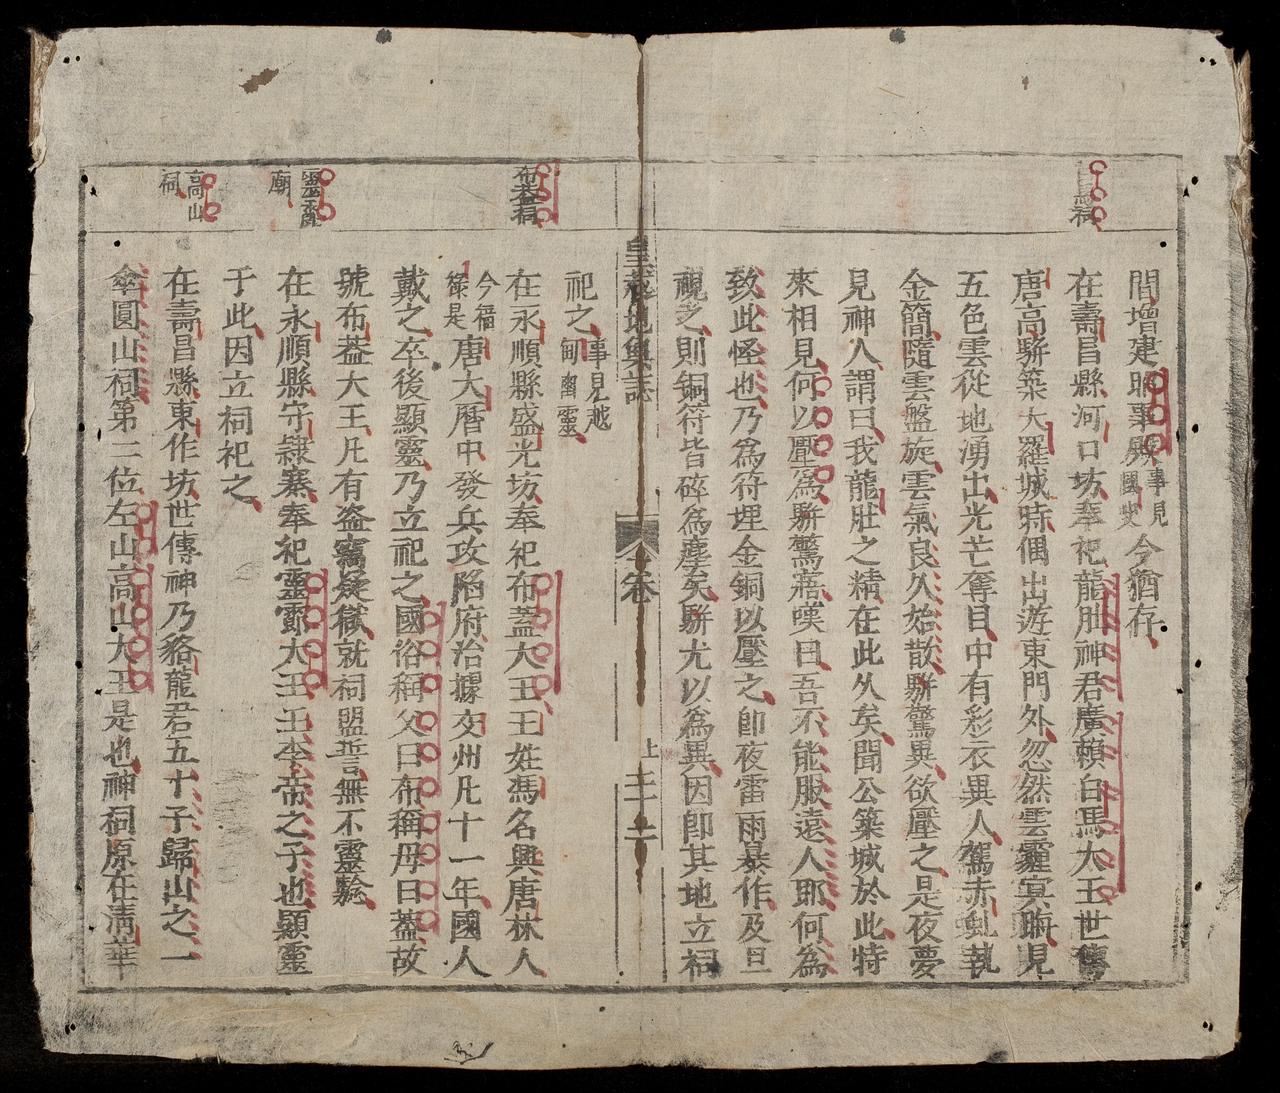 間增建聽事殿事見國史今猶存
在壽昌縣河口坊奉祀龍肚神君廣賴白馬大王世傳
唐高駢築大羅城時偶出遊東門外忽然雲霾冥晦見
五色雲從地湧出光芒奪目中有彩衣異人駕赤虬執
金簡隨雲盤旋雲氣良久始散駢驚異欲壓之是夜夢
見神人謂曰我龍肚之精在此久矣聞公築城於此特
來相見何以壓為駢驚寤嘆曰吾不能服遠人耶何為
致此怪也乃為符埋金銅以壓之即夜雷雨暴作及旦
視之則銅符皆碎為塵矣駢尤以為異因即其地立祠
皇越地輿誌
卷
上
三十二
祀之事見越甸幽靈
布葢祠
在永順縣盛光坊奉祀布蓋大王王姓馮名興唐林人
今福祿是唐大曆中發兵攻陷府治據交州凡十一年國人
戴之卒後顯靈乃立祀之國俗稱父曰布稱母曰蓋故
號布葢大王凡有盗竊疑獄就祠盟誓言無不靈驗
廟
在永順縣守隸寨奉祀靈郎大王王李帝之子也顯靈
于此因立祠祀之
高山祠
在壽昌縣東作坊世傳神乃貉龍君五十子歸山之一
傘圓山祠第二位左山高山大王是也神祠原在清華